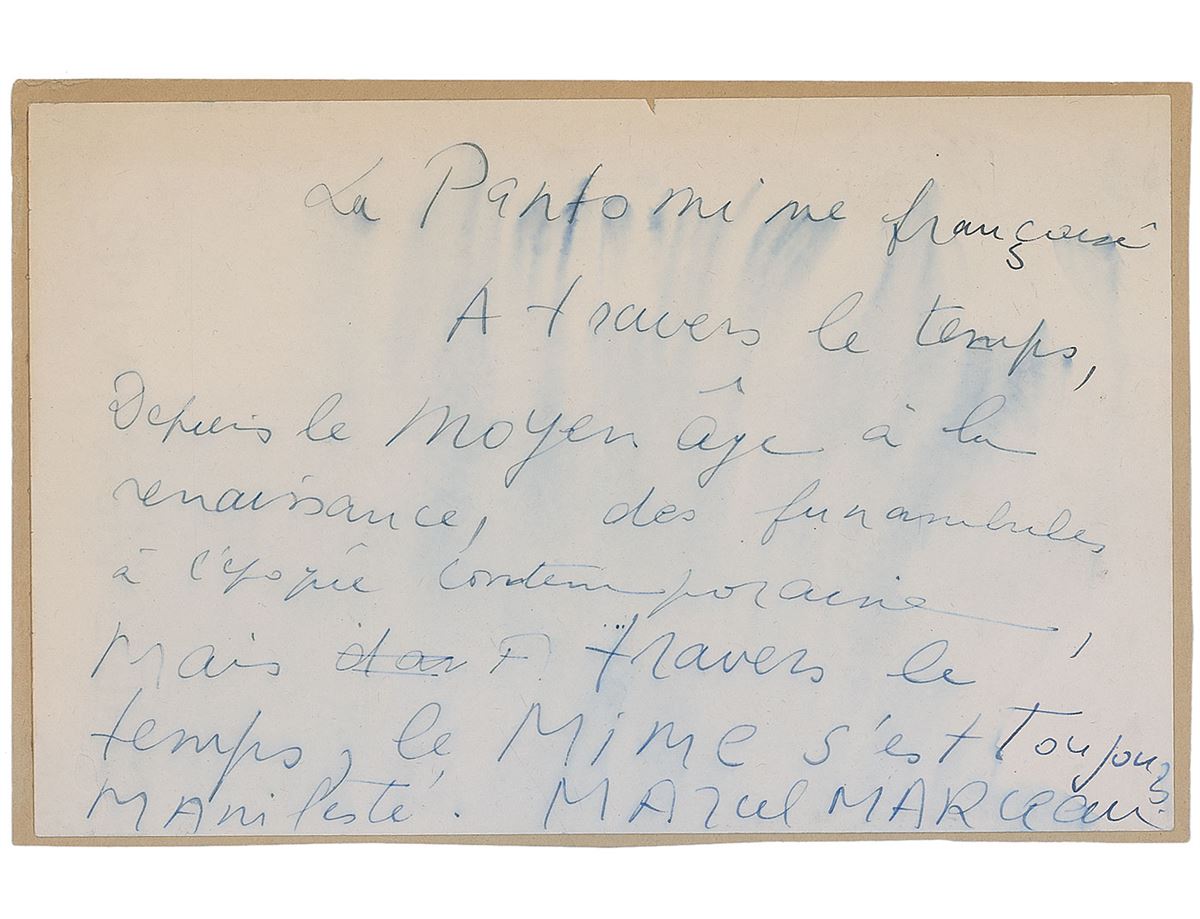 La Pantomime française
A travers le temps,
Depuis le Moyen âge à la
renaissance, des funambules
à l'épopée contemporaine,
Mais A travers le
temps, le Mime s'est Toujours
MAnifesté. MARcel MARceau